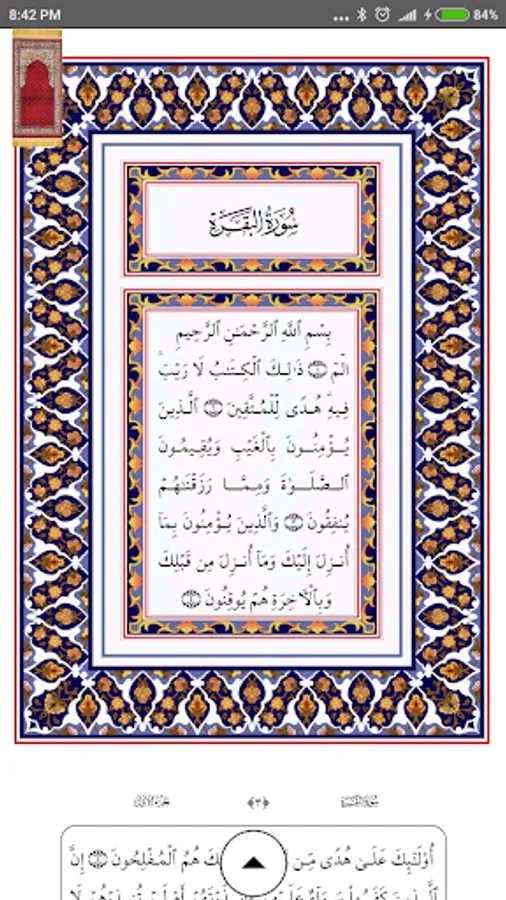 8:42 PM 84%
سُورَةُ البَقَرَةِ
بِسْمِ ٱللَّهِ ٱلرَّحْمَـٰنِ ٱلرَّحِيمِ
الٓمٓ ۝١ ذَٰلِكَ ٱلْكِتَـٰبُ لَا رَيْبَ ۛ
فِيهِ ۛ هُدًى لِّلْمُتَّقِينَ ۝٢ ٱلَّذِينَ
يُؤْمِنُونَ بِٱلْغَيْبِ وَيُقِيمُونَ
ٱلصَّلَوٰةَ وَمِمَّا رَزَقْنَـٰهُمْ
يُنفِقُونَ ۝٣ وَٱلَّذِينَ يُؤْمِنُونَ بِمَآ
أُنزِلَ إِلَيْكَ وَمَآ أُنزِلَ مِن قَبْلِكَ
وَبِٱلْـَٔاخِرَةِ هُمْ يُوقِنُونَ ۝٤
سُورَةُ البَقَرَةِ ﴿٣﴾ الجزء الأول
أُو۟لَـٰٓئِكَ عَلَىٰ هُدًى مِّن هُمُ ٱلْمُفْلِحُونَ ۝٥ إِنَّ